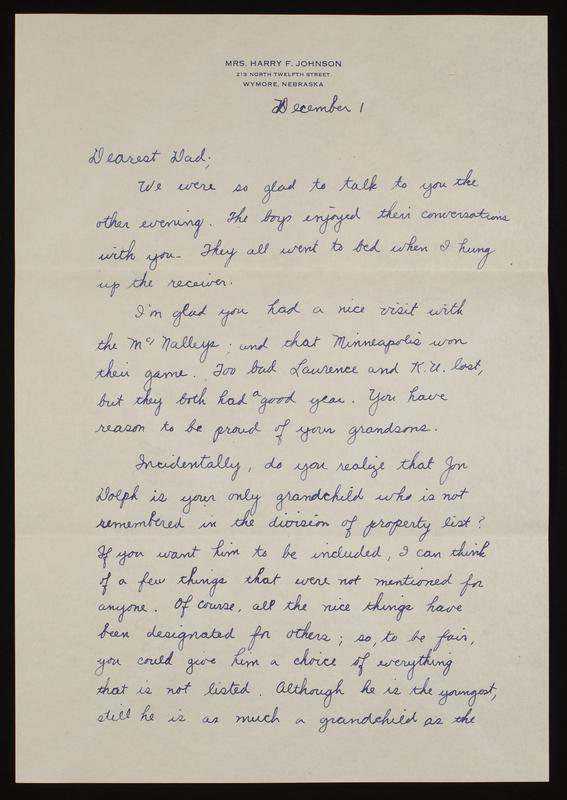 MRS. HARRY F. JOHNSON
213 NORTH TWELFTH STREET
WYMORE, NEBRASKA
December 1
Dearest Dad;
We were so glad to talk to you the
other evening. The boys enjoyed their conversations
with you. They all went to bed when I hung
up the receiver.
I'm glad you had a nice visit with
the Mc Nalleys; and that Minneapolis won
their game. Too bad Laurence and K.U. lost,
but they both had a good year. You have
reason to be proud of your grandsons.
Incidentally, do you realize that Jon
Dolph is your only grandchild who is not
remembered in the division of property list?
If you want him to be included, I can think
of a few things that were not mentioned for
anyone. Of course, all the nice things have
been designated for others; so, to be fair,
you could give him a choice of everything
that is not listed. Although he is the youngest,
still he is as much a grandchild as the